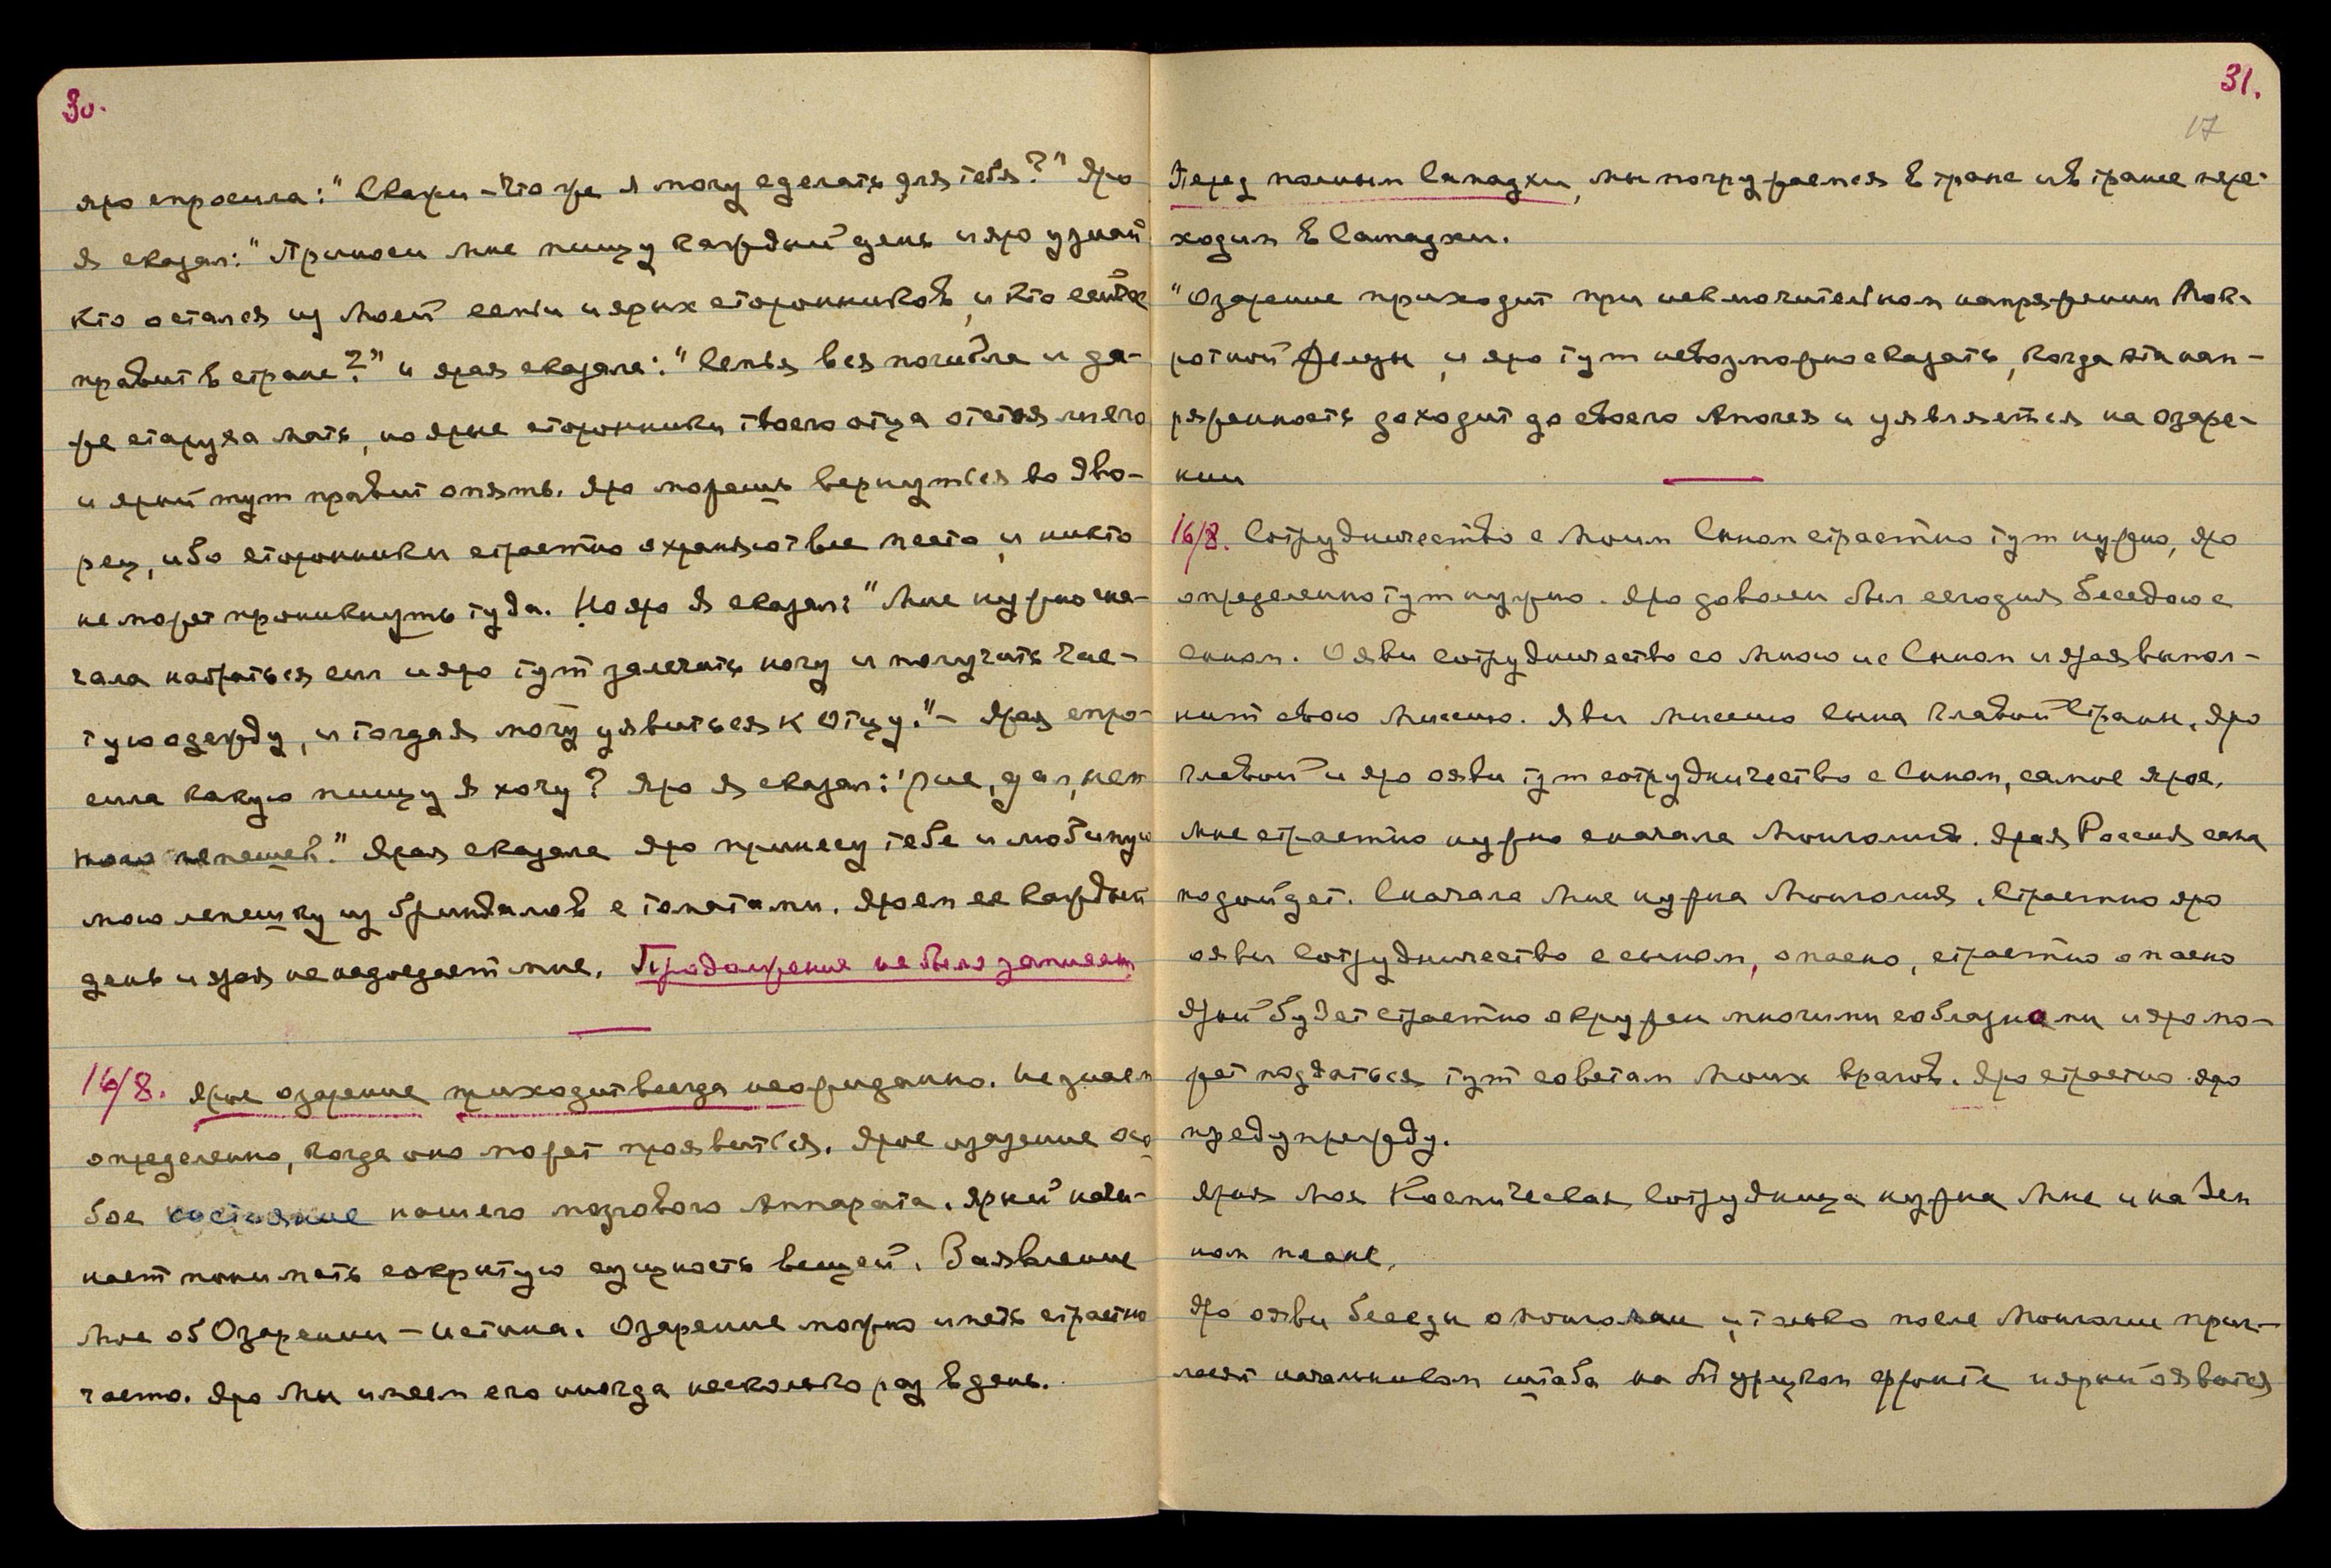 30.
яро спросила: "Скажи - Что же я могу сделать для тебя?" Яро
я сказал: "Приноси мне пищу каждый день и яро узнай
кто остался из моей семьи и ярых сторонников, и кто сейчас
правит в стране?" и ярая сказала: "Семья вся погибла и да-
же старуха мать, но ярые сторонники твоего отца отстояли его
и ярый тут правит опять. Яро можешь вернуться во Дво-
рец, ибо сторонники страстно охраняют все место и никто
не может проникнуть туда. Но яро Я сказал: "Мне нужно сна-
чала набраться сил и яро тут залечить ногу и получить чис-
тую одежду, и тогда я могу уявиться к Отцу." - Ярая спро-
сила какую пищу я хочу? Яро я сказал: "рис, дал, нем
ного лепешек." Ярая сказала яро принесу тебе и любимую
мою лепешку из бринджалов с томатами. Яро ем ее каждый
день и ярая не надоедает мне. Продолжение не было записано
16/8. Ярое озарение приходит всегда неожиданно. Не знаем
определенно, когда оно может проявиться. Ярое озарение осо
бое состояние нашего мозгового Аппарата. Ярый начи-
нает понимать сокрытую сущность вещей. Заявление
Мое об Озарении - истина. Озарение можно иметь страстно
часто. Яро Мы имеем его иногда несколько раз в день.
31.
17
Перед полным Самадхи, мы погружаемся в транс и в трансе пере-
ходим в Самадхи.
"Озарение приходит при исключительном напряжении Мок-
ротной железы, и яро тут невозможно сказать, когда эта нап-
ряженность доходит до своего Апогея и уявляется на озаре-
нии
16/8. Сотрудничество с Моим Сыном страстно тут нужно, яро
определенно тут нужно. Яро доволен был сегодня беседою с
сыном. Ояви сотрудничество со Мною и с Сыном и ярая выпол-
нит свою Миссию. Яви миссию сына Главой Страны, яро
главой и яро ояви тут сотрудничество с Сыном, самое ярое.
Мне страстно нужно сначала Монголия. Ярая Россия сама
подойдет. Сначала Мне нужна Монголия. Страстно яро
ояви сотрудничество с сыном, опасно, страстно опасно
Ярый будет страстно окружен многими соблазнами и яро мо-
жет поддаться тут советам Моих врагов. Яро страстно яро
предупрежду.
Ярая Моя Космическая Сотрудница нужна Мне и на Зем
ном плане.
Яро ояви беседы о Монголии и только после Монголии приг-
ласят начальником штаба на Турецком фронте и ярый оявится